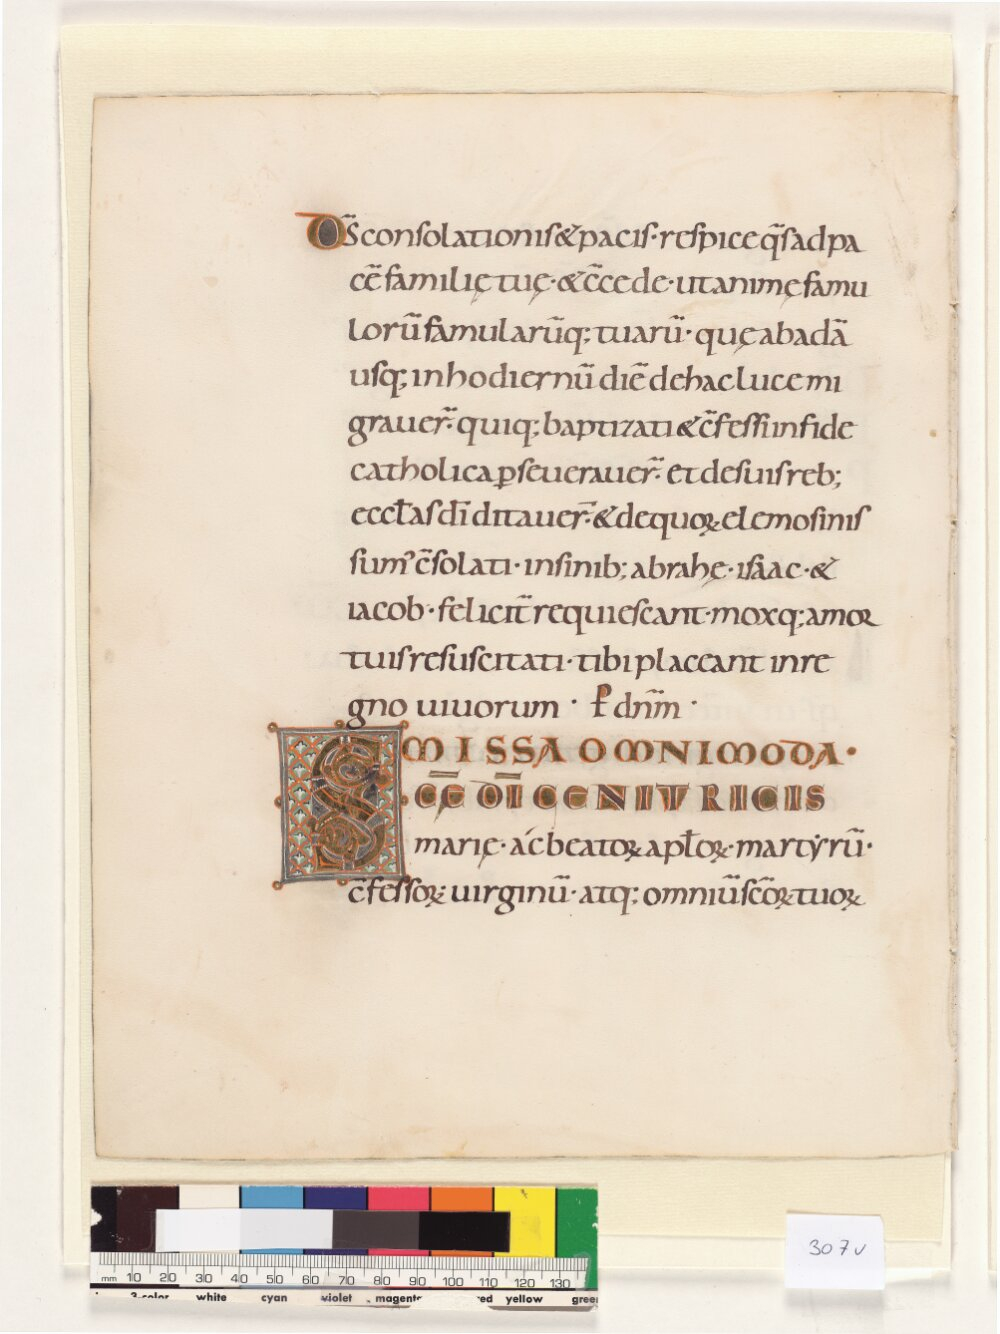 D̅S̅ consolationis & pacis· respice q̅s ad pa
ce̅ familię tuę· & c̅cede· ut animę famu
loru̅ famularu̅q; tuaru̅· quę ab ada̅
usq; in hodiernu̅ die̅ de hac luce mi
grauer̅· quiq; baptizati & c̅fessi in fide
catholica ꝑseuerauer̅· et de suis reb;
eccl̅as di̅ ditauer̅· & de quoꝝ elemosinis
sum᾽ c̅solati· in sinib; abrahę· isaac· &
iacob· felicit̅ requiescant· moxq; amoꝛ
tuis resuscitati· tibi placeant in re
gno uiuorum · P̅ dn̅m ·
MISSA OMNIMODA·
S CE̅ DI̅ GENITRICIS
marię· ác beatoꝝ apl̅oꝝ· martyru̅·
c̅fessoꝝ; uirginu̅· atq; omniu̅ sc̅oꝝ tuoꝝ
mm 10 20 30 40 50 60 70 80 90 100 110 120 130
3-color white cyan violet magenta red yellow green
307v